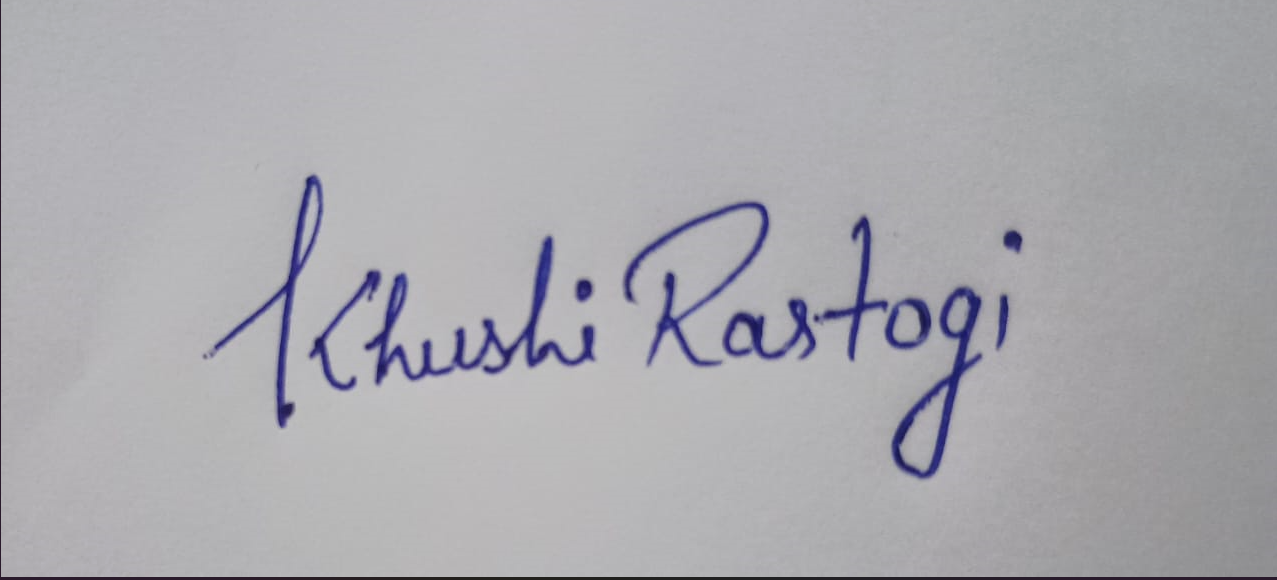 Khushi Rastogi